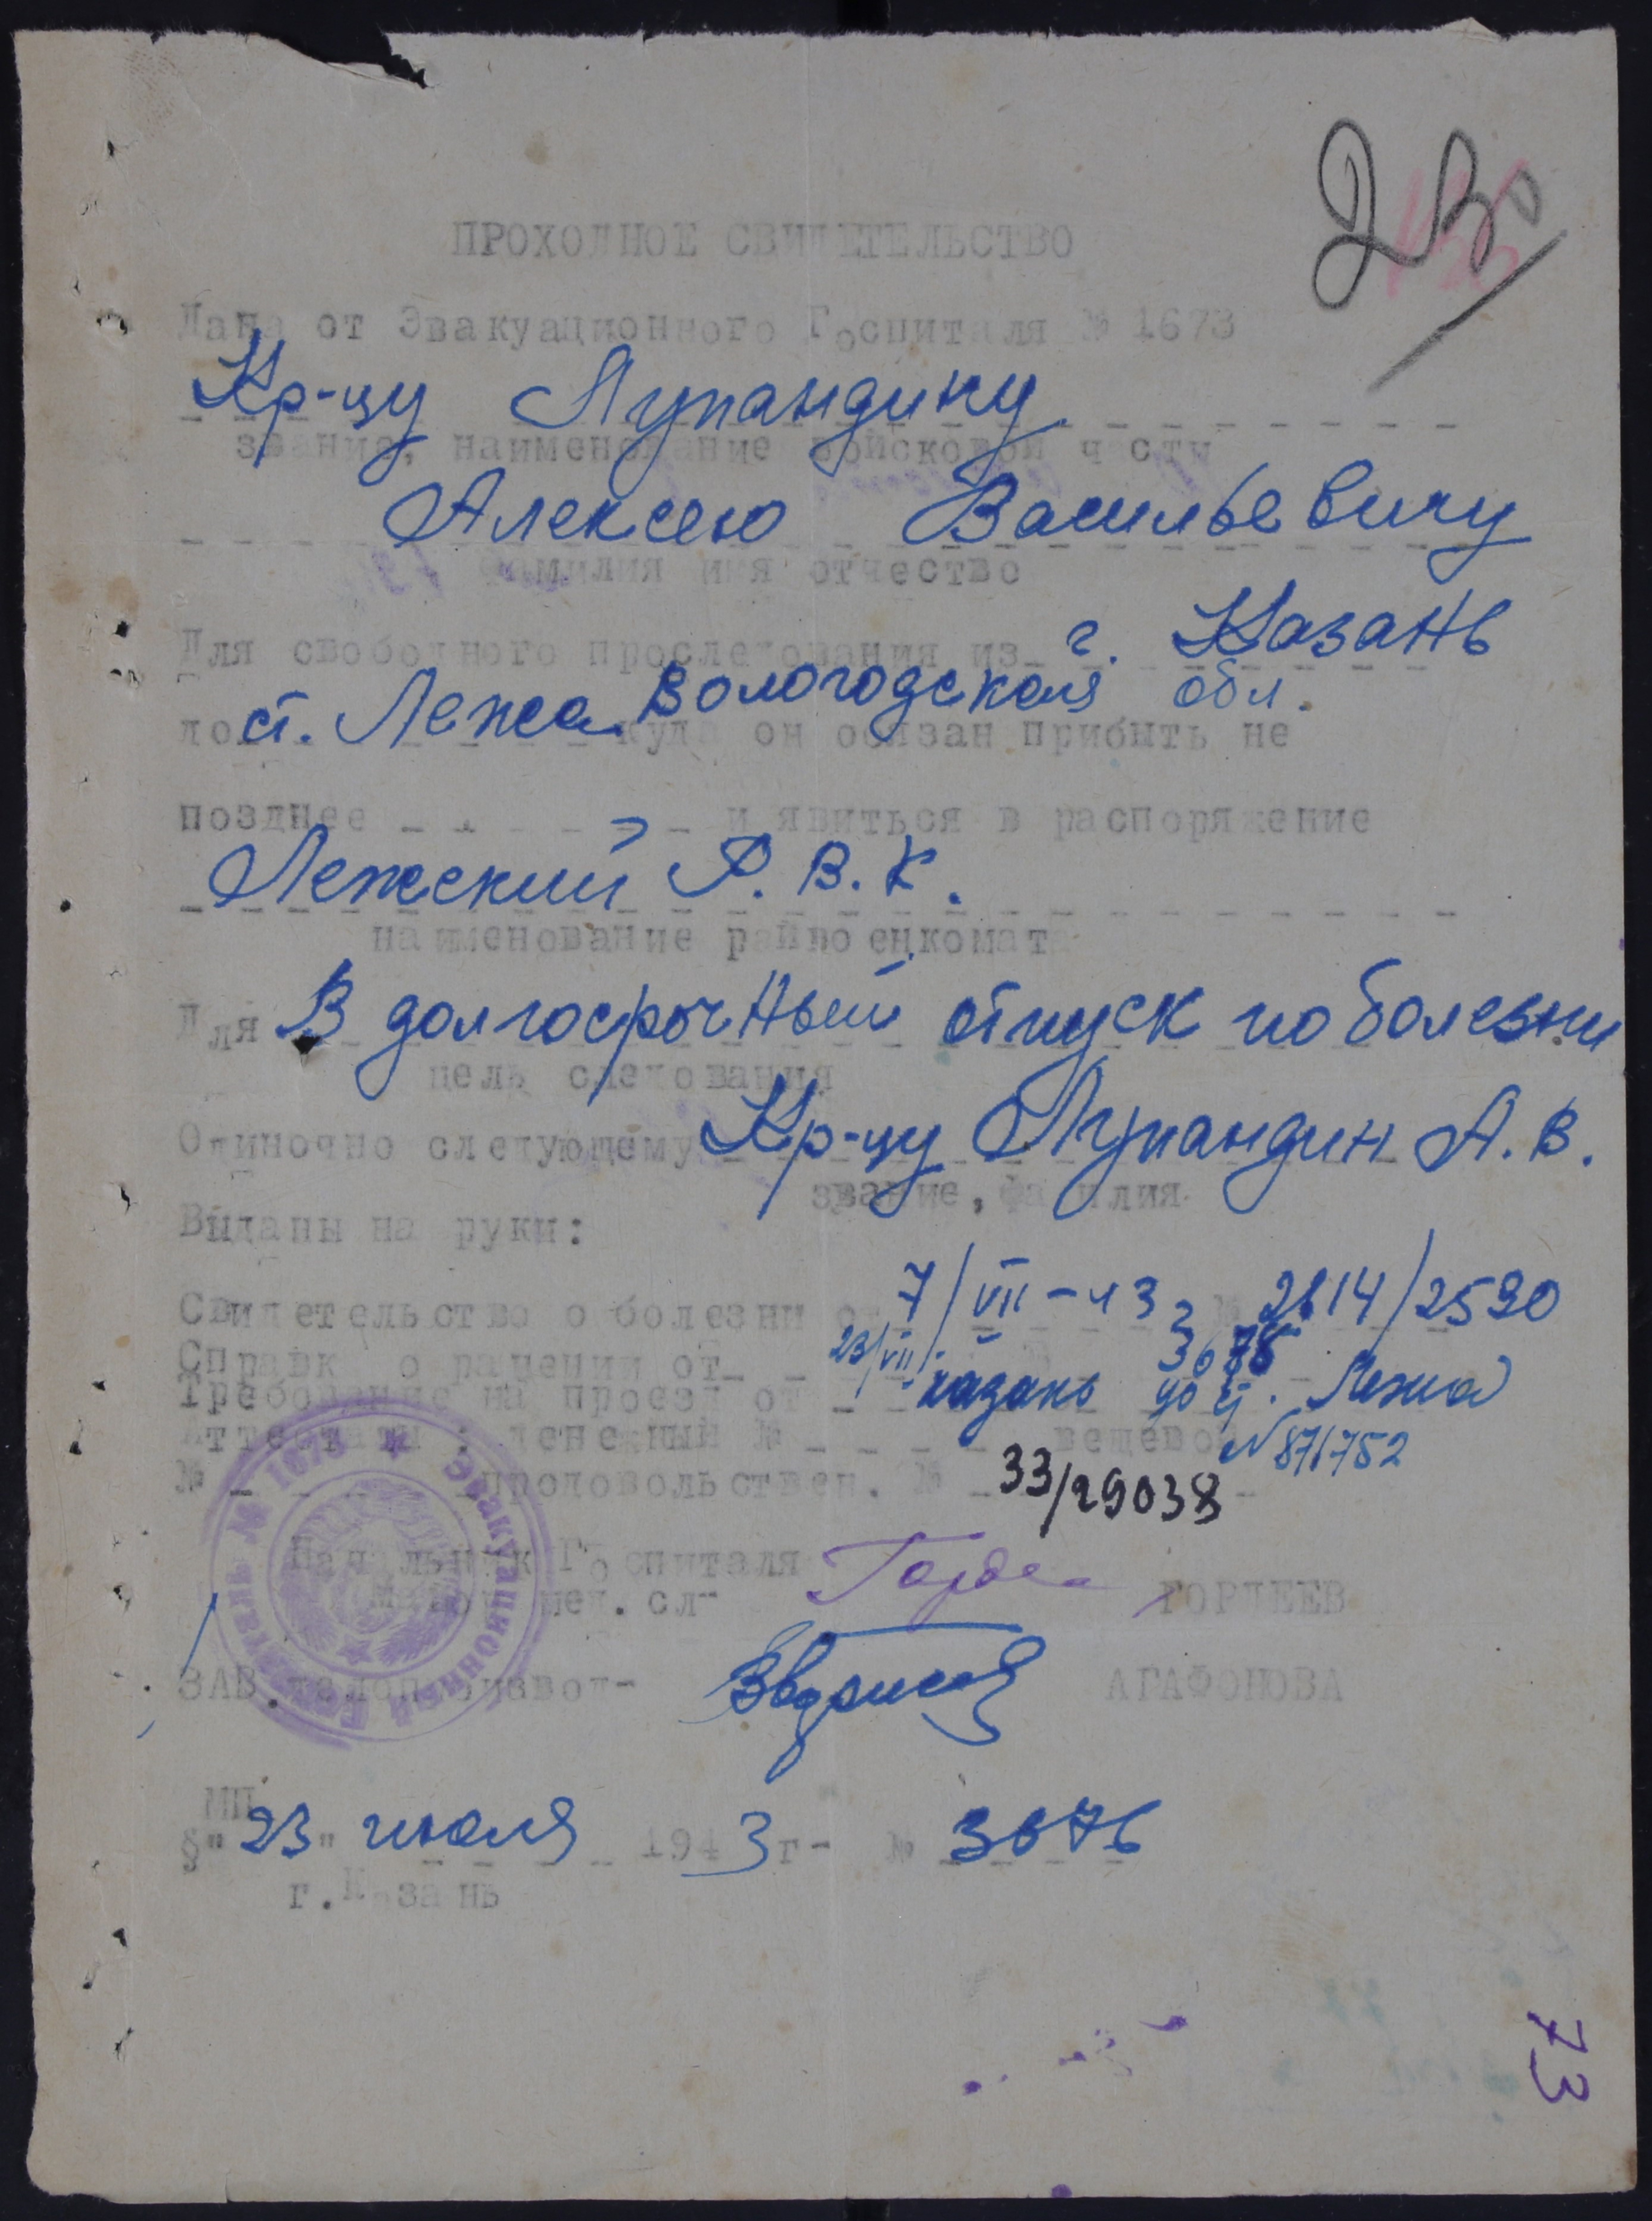 ПРОХОДНОЕ СВИДЕТЕЛЬСТВО
Дана от Эвакуационного Госпиталя № 1673
Кр-цу Лупандину
звание, наименование войсковой части
Алексею Васильевичу
фамилия имя отчество
Для свободного проследования из г. Казань
до ст. Лежа Вологодская обл. куда он обязан прибыть не
позднее и явиться в распоряжение
Лежский Р.В.К.
наименование райвоенкомата
Для В долгосрочный отпуск по болезни
цель следования
Одиночно следующему Кр-цу Лупандин А.В.
звание, фамилия
Выданы на руки:
Свидетельство о болезни от 7/VII-43 г № 2614/2590
Справк о ранении от 23/VII
Требование на проезд от Казань до ст. Лежа
Аттестаты: денежный № вещевой N 871752
№ продовольствен. № 33/29038
Начальник Госпиталя
мед. сл- ГОРДЕЕВ
ЗАВ. АГАФОНОВА
МП
§"23" июля 1943г- № 3676
г.Казань
Эвакуационный Госпиталь № 1673
73